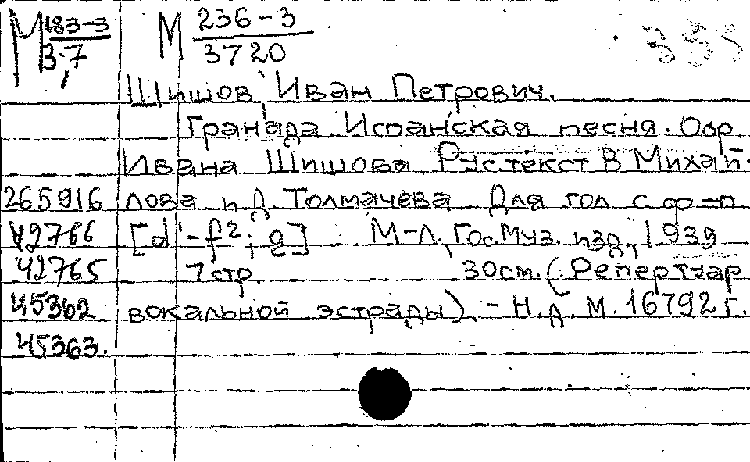 М 183-3/3.7 М 236-3/3720
Шишов, Иван Петрович.
Гренада Испанская песня. Обр.
Ивана Шишова Рус. текст В Михай-
265916 лова и Д. Толмачева Для гол с ф-п
42766 [d¹-f²; g] М-Л, Гос. муз. изд, 1939
42765 7 стр 30см. (Репертуар
45362 вокальной эстрады) - Н. Д. М. 16792 г.
45363.